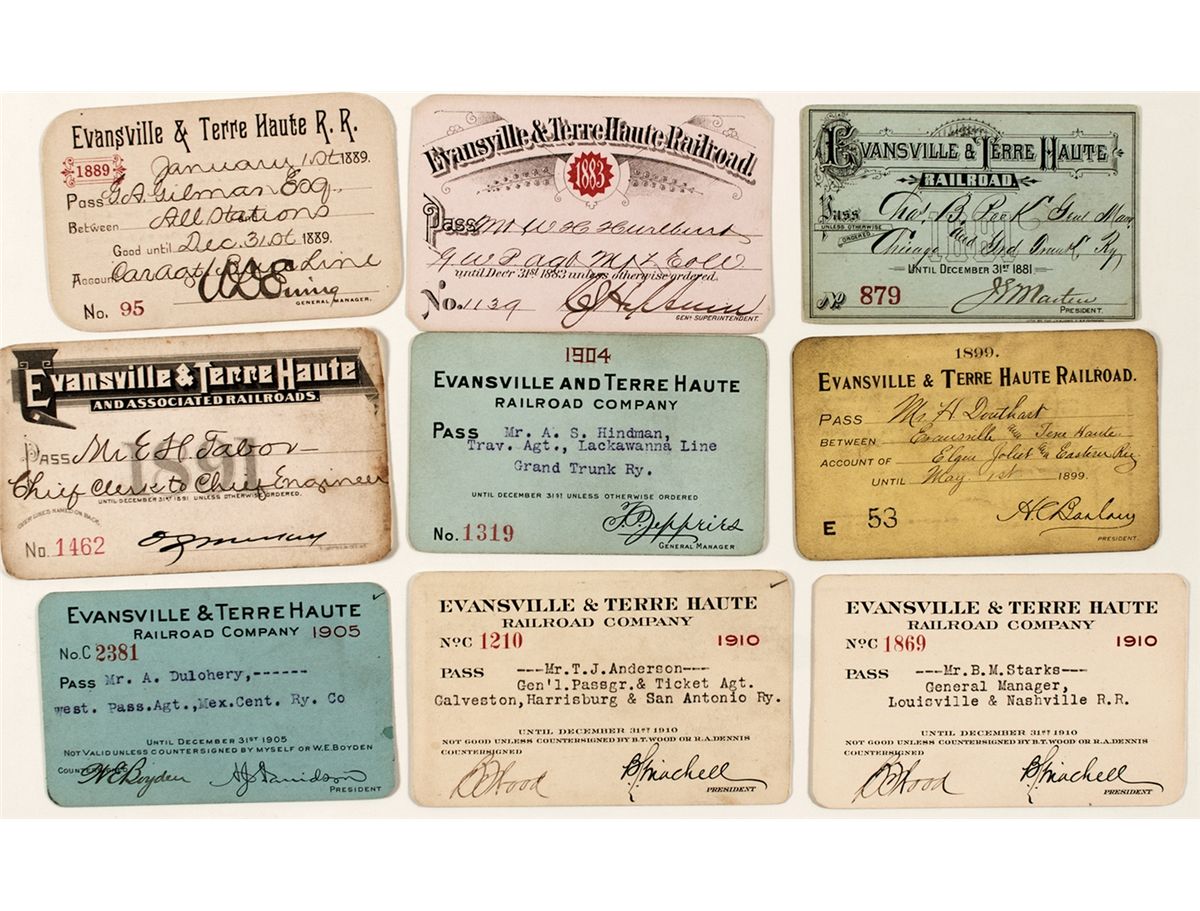 Evansville & Terre Haute R. R.
1889
January 1st 1889.
Pass G. A. Gilman Esq.
Between All Stations
Good until Dec. 31st 1889.
Account Line
GENERAL MANAGER.
No. 95
Evansville & Terre Haute Railroad.
1883
Pass Mr W. H. Hurlburt
until Decr 31st 1883 unless otherwise ordered.
No. 1139
GENL SUPERINTENDENT.
EVANSVILLE & TERRE HAUTE
RAILROAD.
Pass Chas. B. Peck, Genl Man
UNLESS OTHERWISE
ORDERED.
Chicago and Grd Trunk Ry
1881
UNTIL DECEMBER 31ST 1881
No 879 J E Martin
PRESIDENT.
Evansville & Terre Haute
AND ASSOCIATED RAILROADS.
1891
PASS Mr. E. H. Tabor
Chief Clerk to Chief Engineer
UNTIL DECEMBER 31ST 1891 UNLESS OTHERWISE ORDERED.
OVER LINES NAMED ON BACK.
No. 1462
1904
EVANSVILLE AND TERRE HAUTE
RAILROAD COMPANY
PASS Mr. A. S. Hindman,
Trav. Agt., Lackawanna Line
Grand Trunk Ry.
UNTIL DECEMBER 31ST UNLESS OTHERWISE ORDERED
No. 1319 Jeffries
GENERAL MANAGER
1899.
EVANSVILLE & TERRE HAUTE RAILROAD.
PASS Mr. H. Douthart
BETWEEN Evansville and Terre Haute
ACCOUNT OF Elgin Joliet and Eastern Ry
UNTIL May 1st 1899.
E 53
PRESIDENT.
EVANSVILLE & TERRE HAUTE
RAILROAD COMPANY 1905
No. C 2381
PASS Mr. A. Dulohery,------
west. Pass.Agt.,Mex.Cent. Ry. Co
UNTIL DECEMBER 31ST 1905
NOT VALID UNLESS COUNTERSIGNED BY MYSELF OR W.E. BOYDEN
COUNTERSIGNED W E Boyden A J Davidson
PRESIDENT
EVANSVILLE & TERRE HAUTE
RAILROAD COMPANY
No C 1210 1910
PASS ---Mr.T.J.Anderson---
Gen'l.Passgr.& Ticket Agt.
Galveston,Harrisburg & San Antonio Ry.
UNTIL DECEMBER 31ST 1910
NOT GOOD UNLESS COUNTERSIGNED BY B.T. WOOD OR R.A. DENNIS
COUNTERSIGNED
B T Wood B L Winchell
PRESIDENT
EVANSVILLE & TERRE HAUTE
RAILROAD COMPANY
No C 1869 1910
PASS ---Mr.B.M.Starks---
General Manager,
Louisville & Nashville R.R.
UNTIL DECEMBER 31ST 1910
NOT GOOD UNLESS COUNTERSIGNED BY B.T. WOOD OR R.A. DENNIS
COUNTERSIGNED
B T Wood B L Winchell
PRESIDENT